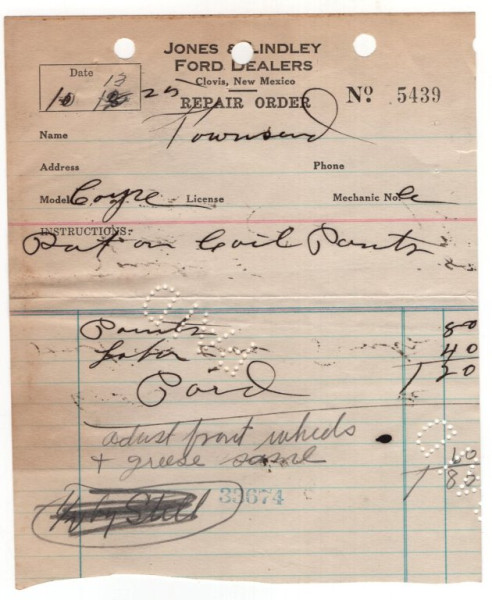 JONES & LINDLEY
FORD DEALERS
Clovis, New Mexico
REPAIR ORDER
No 5439
Date
10 13 25
Name Townsend
Address Phone
Model Coupe License Mechanic No.
INSTRUCTIONS:
Put on Coil Points
Points 80
Labor 40
1 20
Paid
adust front wheels
+ greese same 60
1 80
33674